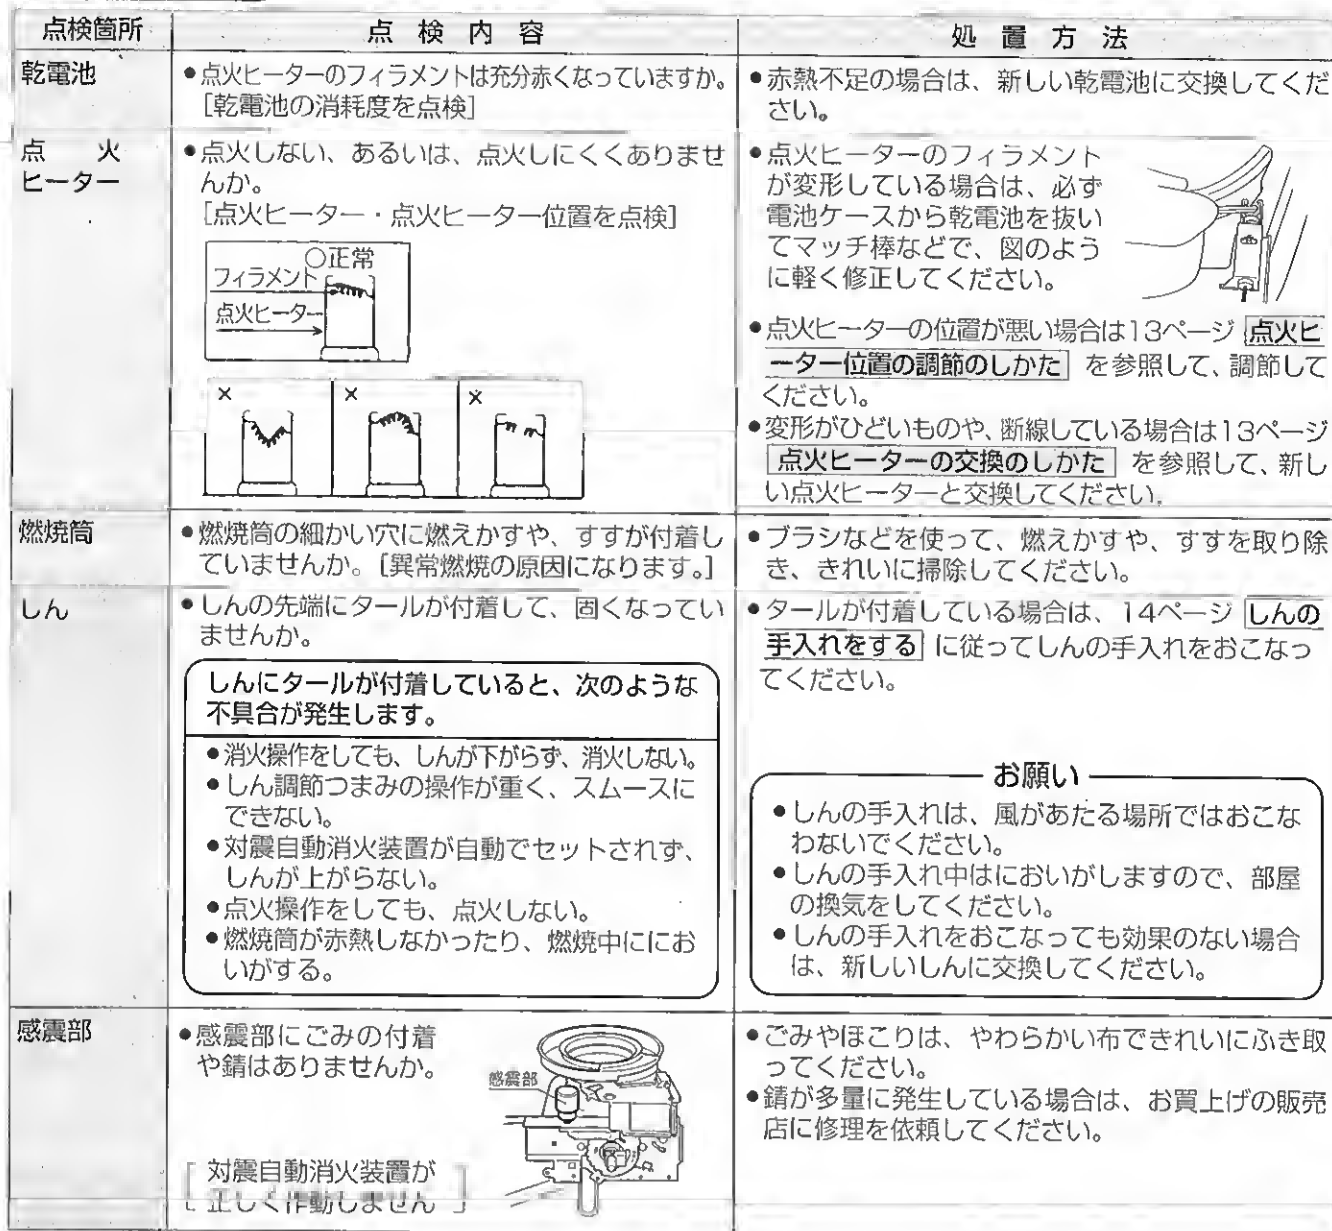 点検箇所
点検内容
処置方法
乾電池
●点火ヒーターのフィラメントは充分赤くなっていますか。
[乾電池の消耗度を点検]
●赤熱不足の場合は、新しい乾電池に交換してくだ
さい。
点火
ヒーター
●点火しない、あるいは、点火しにくくありませ
んか。
[点火ヒーター・点火ヒーター位置を点検]
○正常
フィラメント
点火ヒーター
×
×
×
●点火ヒーターのフィラメント
が変形している場合は、必ず
電池ケースから乾電池を抜い
てマッチ棒などで、図のよう
に軽く修正してください。
●点火ヒーターの位置が悪い場合は13ページ 点火ヒ
ーター位置の調節のしかた を参照して、調節して
ください。
●変形がひどいものや、断線している場合は13ページ
点火ヒーターの交換のしかた を参照して、新し
い点火ヒーターと交換してください。
燃焼筒
●燃焼筒の細かい穴に燃えかすや、すすが付着し
ていませんか。[異常燃焼の原因になります。]
●ブラシなどを使って、燃えかすや、すすを取り除
き、きれいに掃除してください。
しん
●しんの先端にタールが付着して、固くなってい
ませんか。
しんにタールが付着していると、次のような
不具合が発生します。
●消火操作をしても、しんが下がらず、消火しない。
●しん調節つまみの操作が重く、スムースに
できない。
●対震自動消火装置が自動でセットされず、
しんが上がらない。
●点火操作をしても、点火しない。
●燃焼筒が赤熱しなかったり、燃焼中ににお
いがする。
●タールが付着している場合は、14ページ しんの
手入れをする に従ってしんの手入れをおこなっ
てください。
お願い
●しんの手入れは、風があたる場所ではおこな
わないでください。
●しんの手入れ中はにおいがしますので、部屋
の換気をしてください。
●しんの手入れをおこなっても効果のない場合
は、新しいしんに交換してください。
感震部
●感震部にごみの付着
や錆はありませんか。
感震部
[対震自動消火装置が
正しく作動しません]
●ごみやほこりは、やわらかい布できれいにふき取
ってください。
●錆が多量に発生している場合は、お買上げの販売
店に修理を依頼してください。